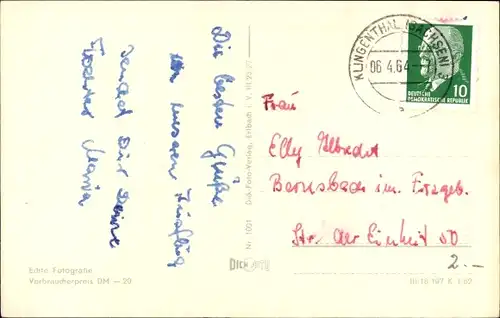 Die besten Grüße
von unserem Ausflug
sendet Dir Deine
Tochter Maria
Echte Fotografie
Verbraucherpreis DM —,20
Nr. 1001 Dick-Foto-Verlag, Erlbach i. V.
DICK
KLINGENTHAL (SACHSEN) 3
06.4.64
10
DEUTSCHE
DEMOKRATISCHE REPUBLIK
Frau
Elly Albrecht
Bernsbach im Erzgeb.
Str. der Einheit 50
2.-
III/18/197 K 1/62